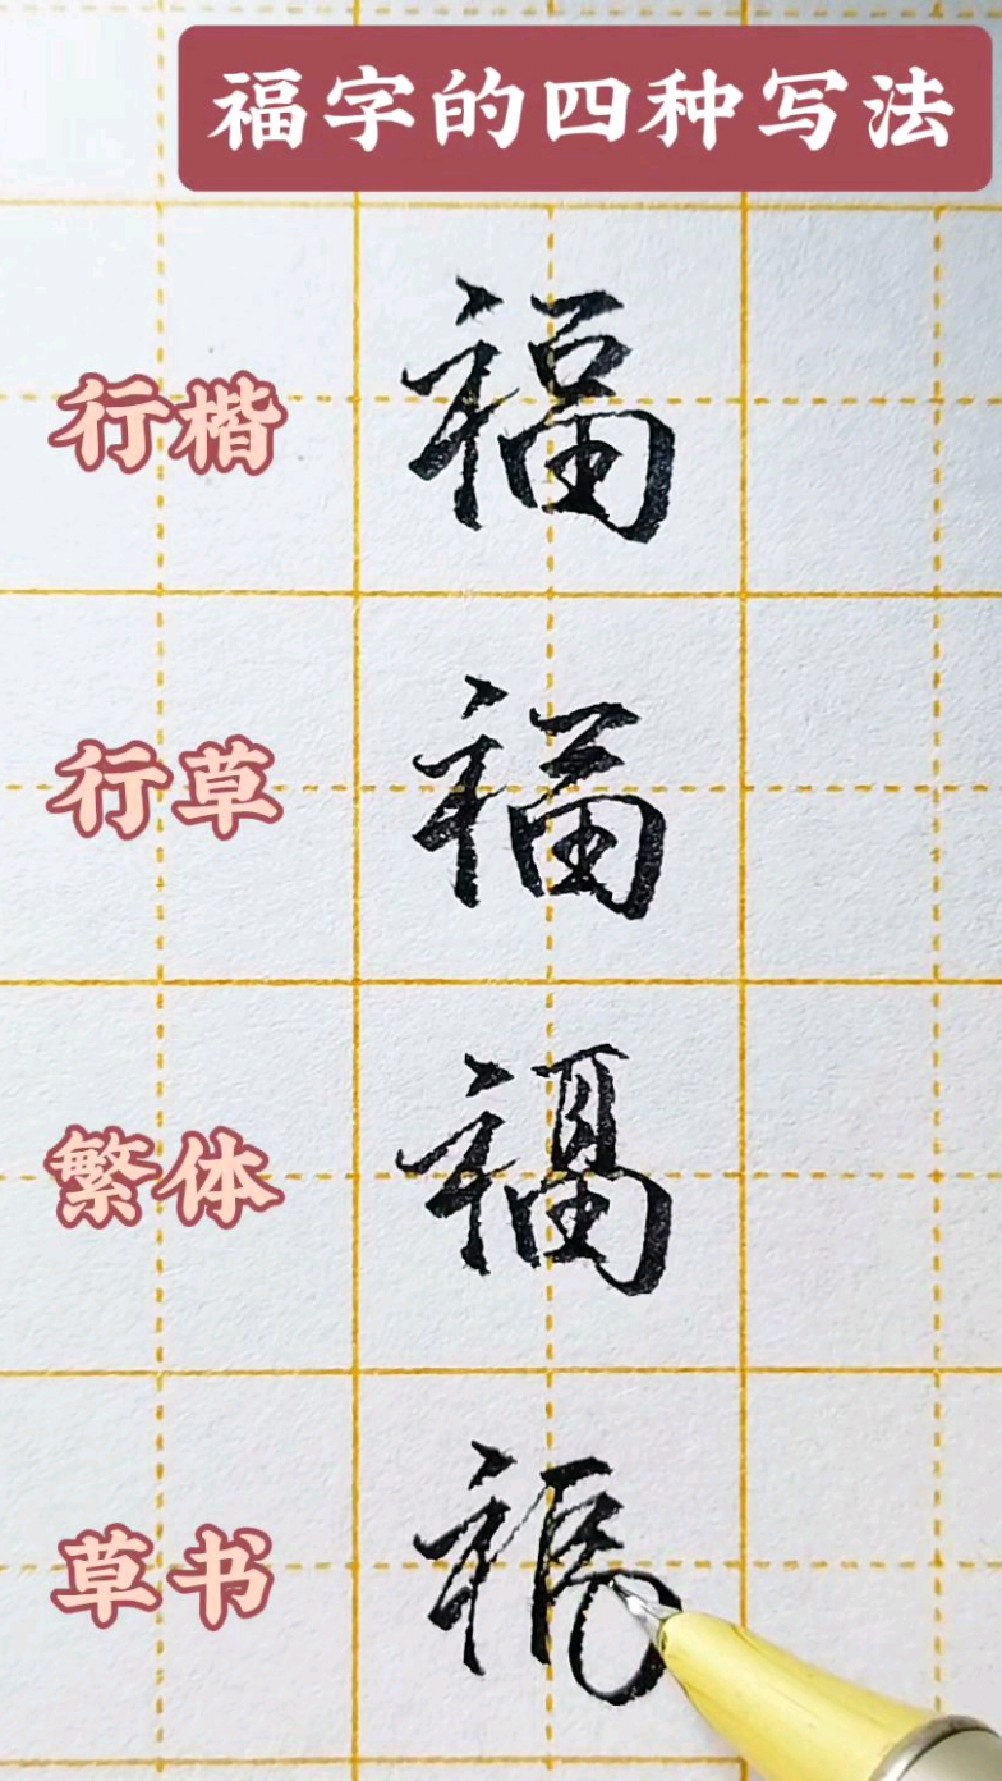 福字的四种写法
行楷 福
行草 福
繁体 福
草书 福